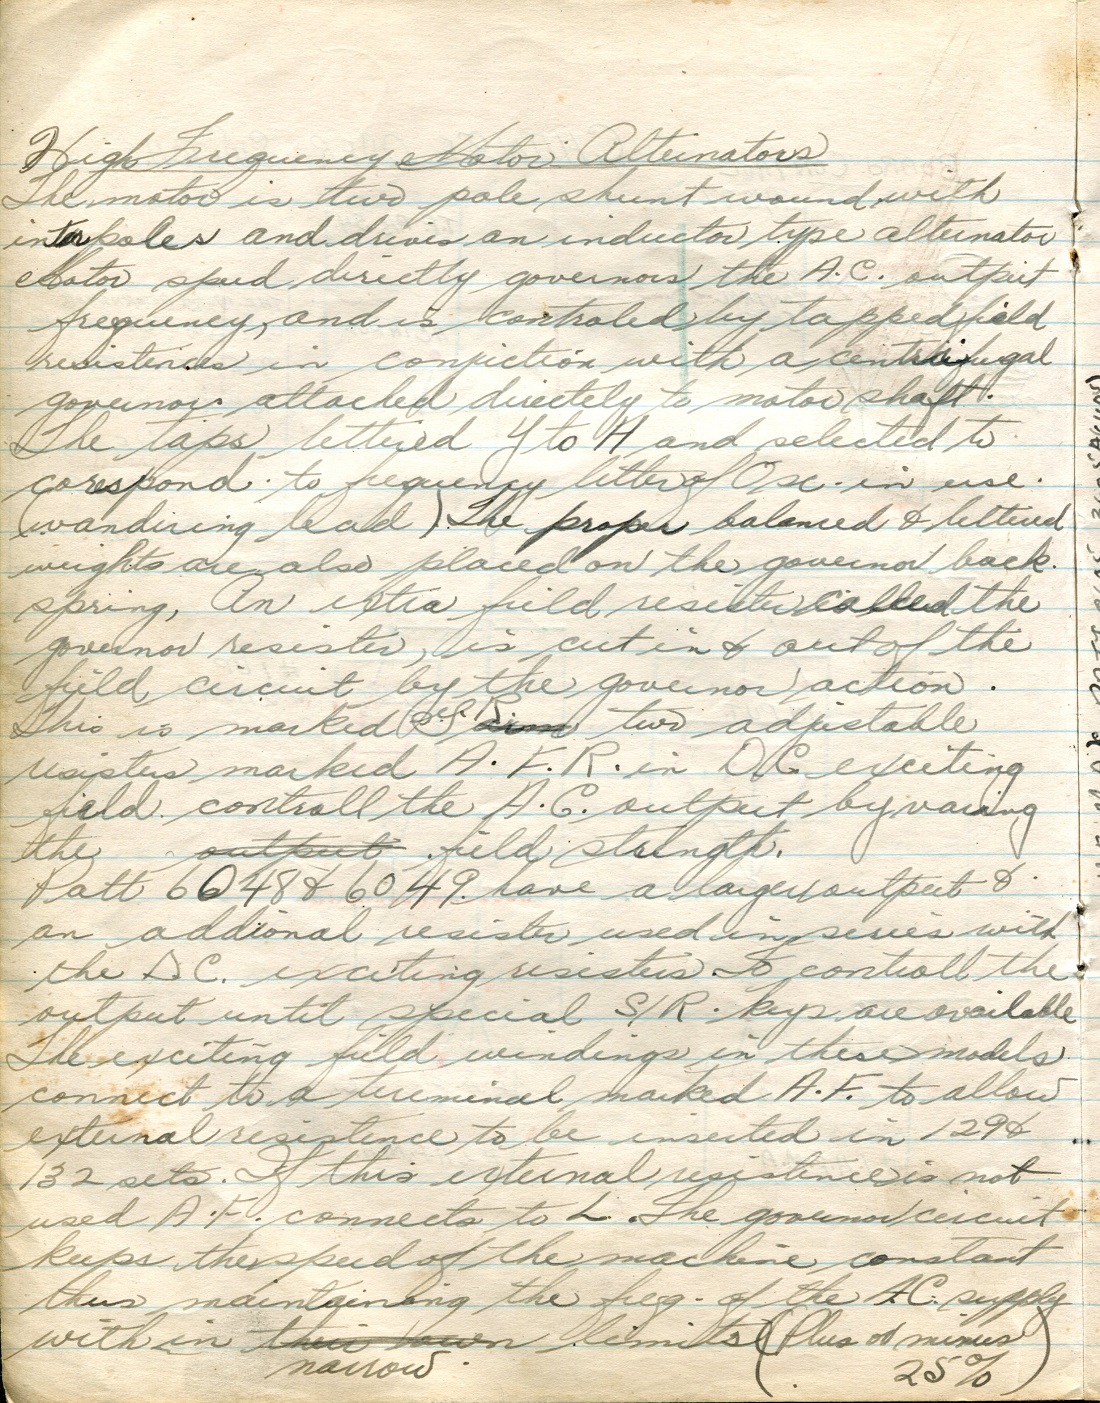 High Frequency Motor Alternators
The motor is two pole shunt wound with
interpoles and drives an inductor type alternator
Motor speed directly governors the A.C. output
frequency, and is controled by tapped field
resistences in conjiction with a centrifugal
governor attached directely to motor shaft.
The taps lettered Y to H and selected to
corespond to frequency letter of Osc. in use.
(wandiring lead) The proper balanced & lettered
weights are also placed on the governor back
spring, An extra field resister called the
governor resister, is cut in & out of the
field circuit by the governor action.
This is marked two adjustable
resisters marked A.F.R. in D.C. exciting
field controll the A.C. output by varing
the output field strength.
Patt 6048 & 6049 have a larger output &
an addional resister used in series with
the D.C. exciting resisters. To controll the
output until special S/R. keys are available
The exciting field windings in these models
connect to a treminal marked A.F. to allow
external resistence to be inserted in 129 &
132 sets. If this external resistence is not
used A.F. connects to L. The governor circuit
keeps the speed of the machine constant
thus maintaining the freq. of the AC. supply
with in limits (Plus or minus
narrow 25%)